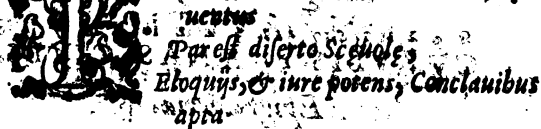 uentus
Par est diserto Scęuolę,
Eloquijs, & iure potens, Conclauibus
apta